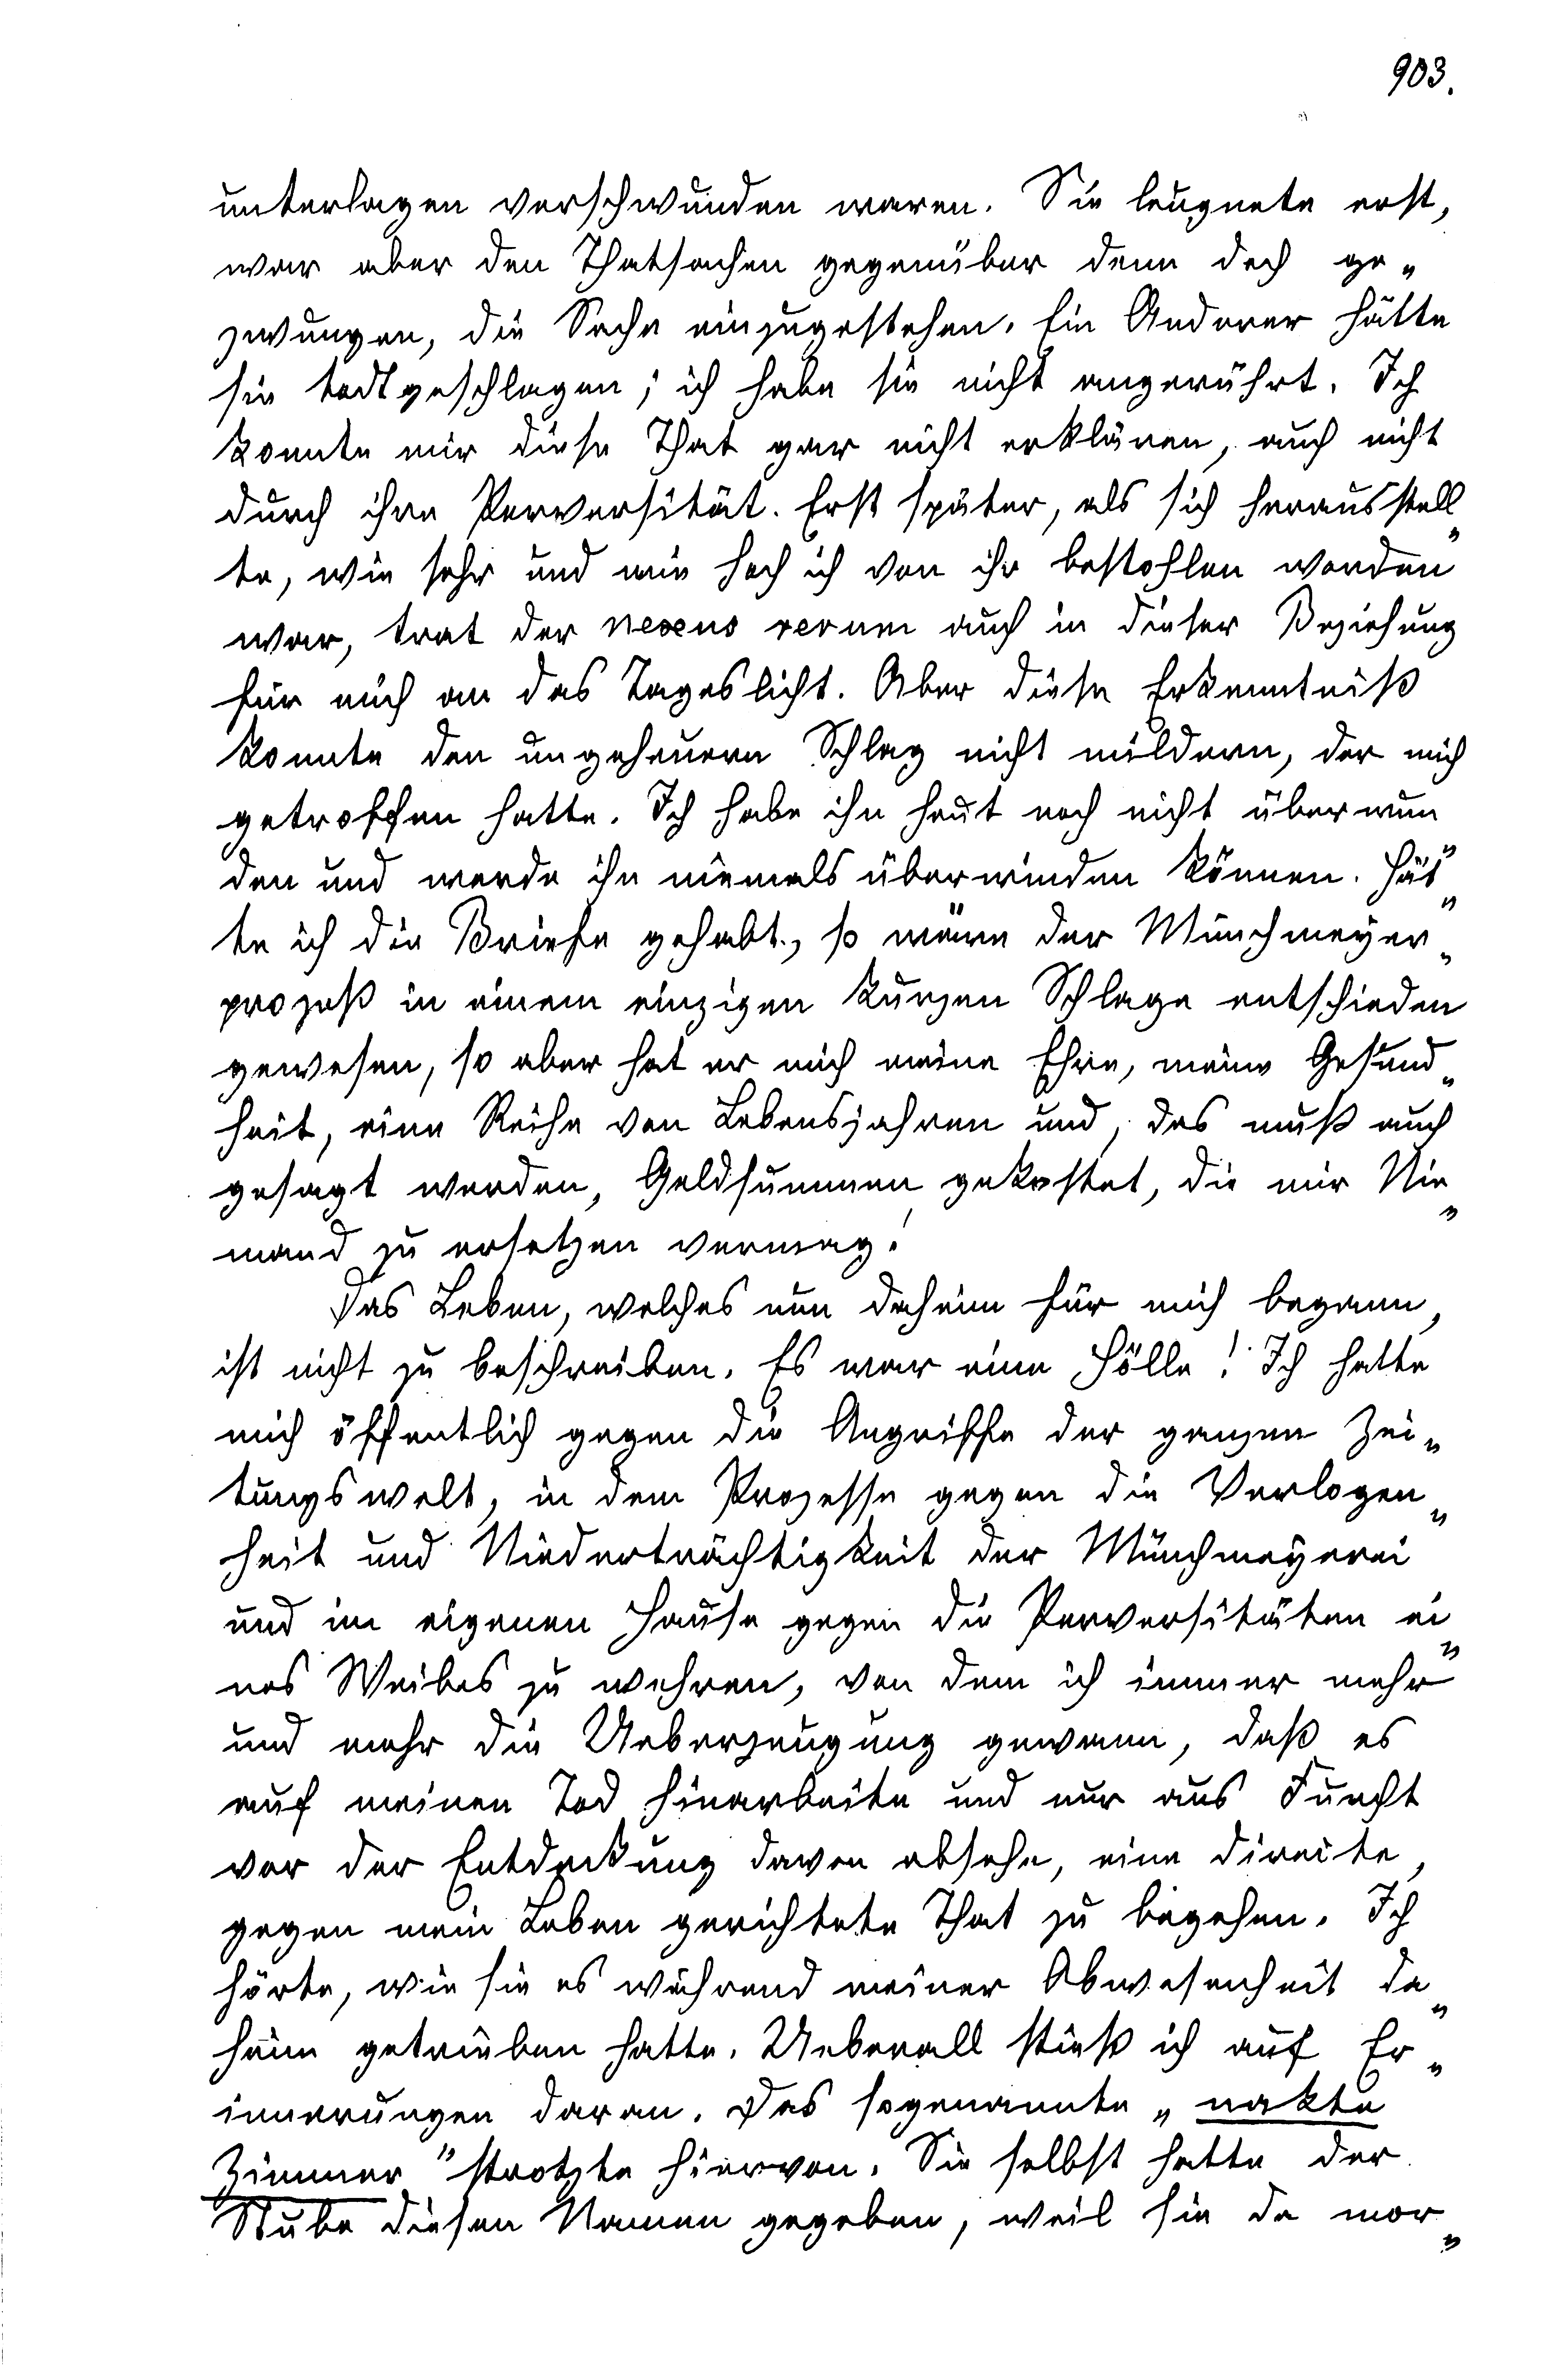 903.
unterlagen verschwunden waren. Sie leugnete erst,
war aber den Thatsachen gegenüber denn doch ge„
zwungen, die Sache einzugestehen. Ein Anderer hätte
sie todtgeschlagen; ich habe sie nicht angerührt. Ich
konnte mir diese That gar nicht erklären, auch nicht
durch ihre Perversität. Erst später, als sich herausstell„
te, wie sehr und wie hoch ich von ihr bestohlen worden
war, trat der nexus rerum auch in dieser Beziehung
für mich an das Tageslicht. Aber diese Erkenntniß
konnte den ungeheuern Schlag nicht mildern, der mich
getroffen hatte. Ich habe ihn heut noch nicht überwun„
den und werde ihn niemals überwinden können. Hät„
te ich die Briefe gehabt, so wäre der Münchmeyer„
prozeß in einem einzigen kurzen Schlage entschieden
gewesen, so aber hat er mich meine Ehre, meine Gesund„
heit, eine Reihe von Lebensjahren und, das muß auch
gesagt werden, Geldsummen gekostet, die mir Nie„
mand zu ersetzen vermag!
Das Leben, welches nun daheim für mich begann,
ist nicht zu beschreiben. Es war eine Hölle! Ich hatte
mich öffentlich gegen die Angriffe der ganzen Zei„
tungswelt, in dem Prozesse gegen die Verlogen„
heit und Niederträchtigkeit der Münchmeyerei
und im eigenen Hause gegen die Perversitäten ei„
nes Weibes zu wehren, von dem ich immer mehr
und mehr die Ueberzeugung gewann, daß es
auf meinen Tod hinarbeite und nur aus Furcht
vor der Entdeckung davon absehe, eine directe,
gegen mein Leben gerichtete That zu begehen. Ich
hörte, wie sie es während meiner Abwesenheit da„
heim getrieben hatte. Ueberall stieß ich auf Er„
innerungen daran. Das sogenannte „nakte
Zimmer" strotzte hiervon. Sie selbst hatte der
Stube diesen Namen gegeben, weil sie da mor„